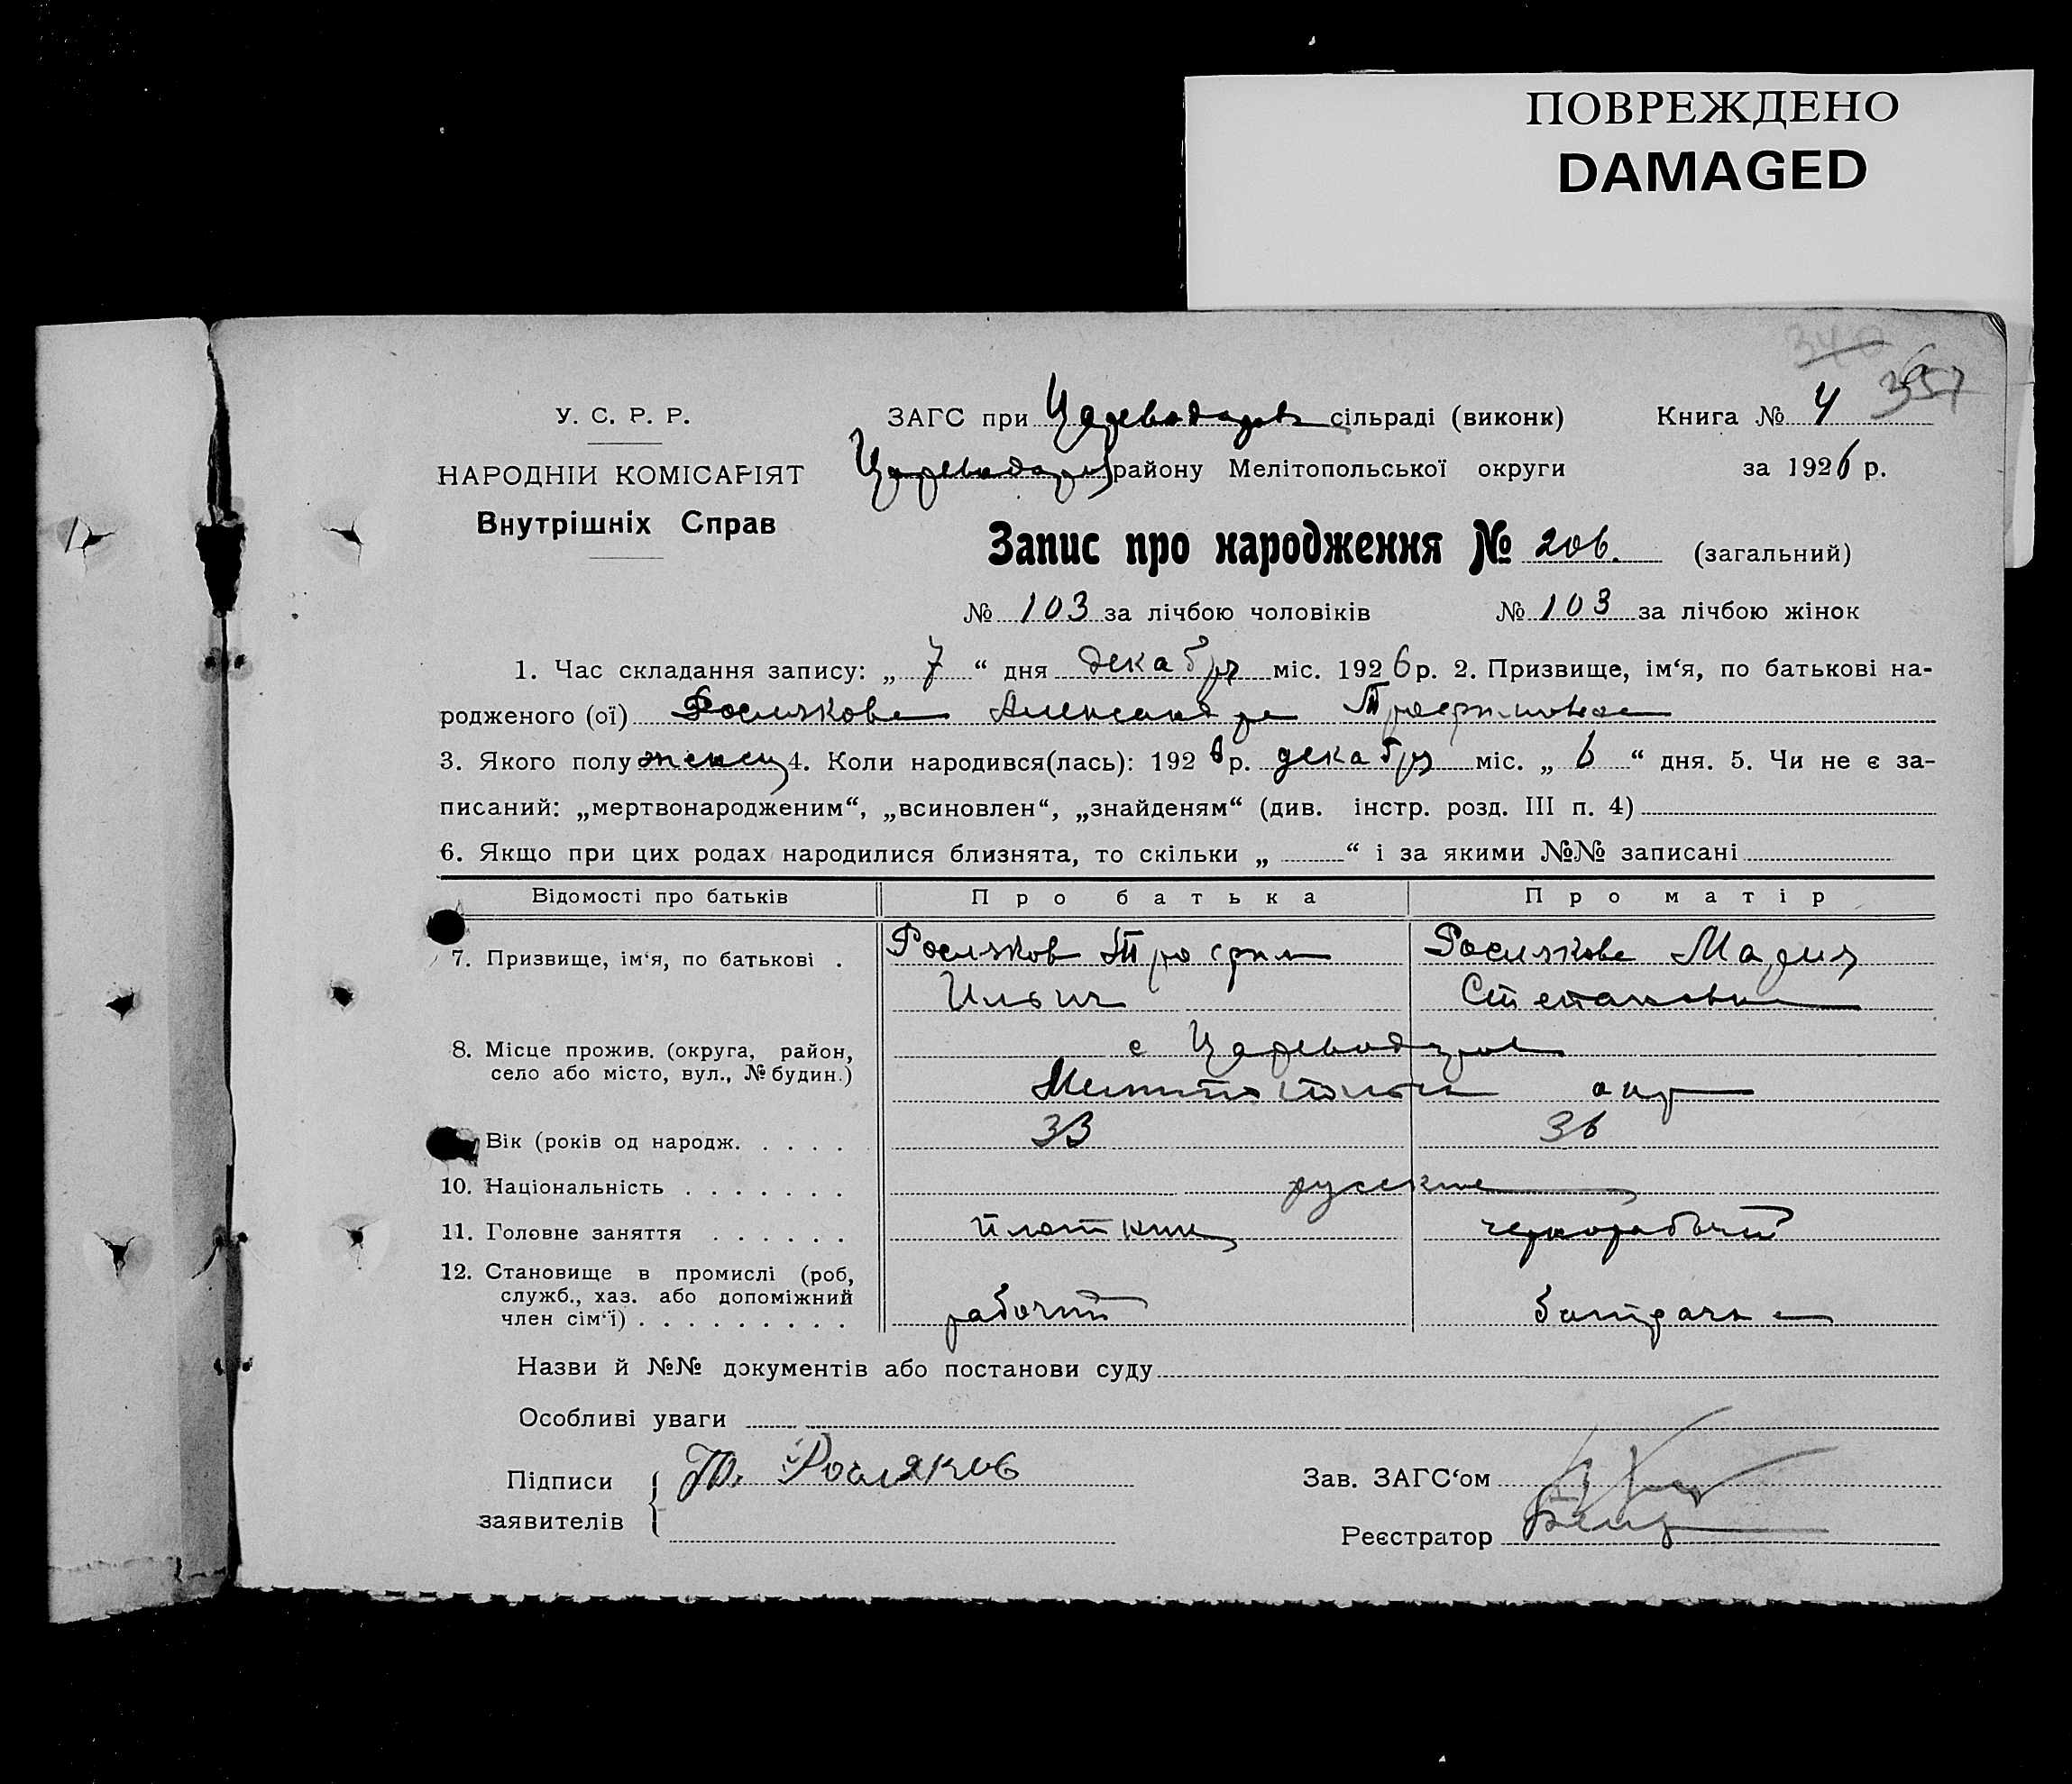 ПОВРЕЖДЕНО
DAMAGED
340
357
У. С. Р. Р.
ЗАГС при Цареводаров сільраді (виконк) Книга № 4
НАРОДНІЙ КОМІСАРІЯТ
Цареводар району Мелітопольської округи за 1926 р.
Внутрішніх Справ
Запис про народження № 206. (загальний)
№ 103 за лічбою чоловіків № 103 за лічбою жінок
1. Час складання запису: „7“ дня декабря міс. 1926 р. 2. Призвище, ім‘я, по батькові на-
родженого (ої) Рослякова Александра Трофимовна
3. Якого полу женск 4. Коли народився(лась): 1926 р. декабря міс. „6“ дня. 5. Чи не є за-
писаний: „мертвонародженим“, „всиновлен“, „знайденям“ (див. інстр. розд. III п. 4)
6. Якщо при цих родах народилися близнята, то скільки „ “ і за якими №№ записані
Відомості про батьків Про батька Про матір
7. Призвище, ім‘я, по батькові . Росляков Трофим Рослякова Мария
Ильич Степановна
8. Місце прожив. (округа, район, с Цареводаровка
село або місто, вул., № будин.) Мелитопольск окр
Вік (років од народж. . . . . 33 36
10. Національність . . . . . . . русские
11. Головне заняття . . . . . . плотник чернорабочий
12. Становище в промислі (роб,
служб., хаз. або допоміжний
член сім‘ї) . . . . . . . . . рабочий батрачка
Назви й №№ документів або постанови суду
Особливі уваги
Підписи Росляков Зав. ЗАГС‘ом
заявителів
Реєстратор